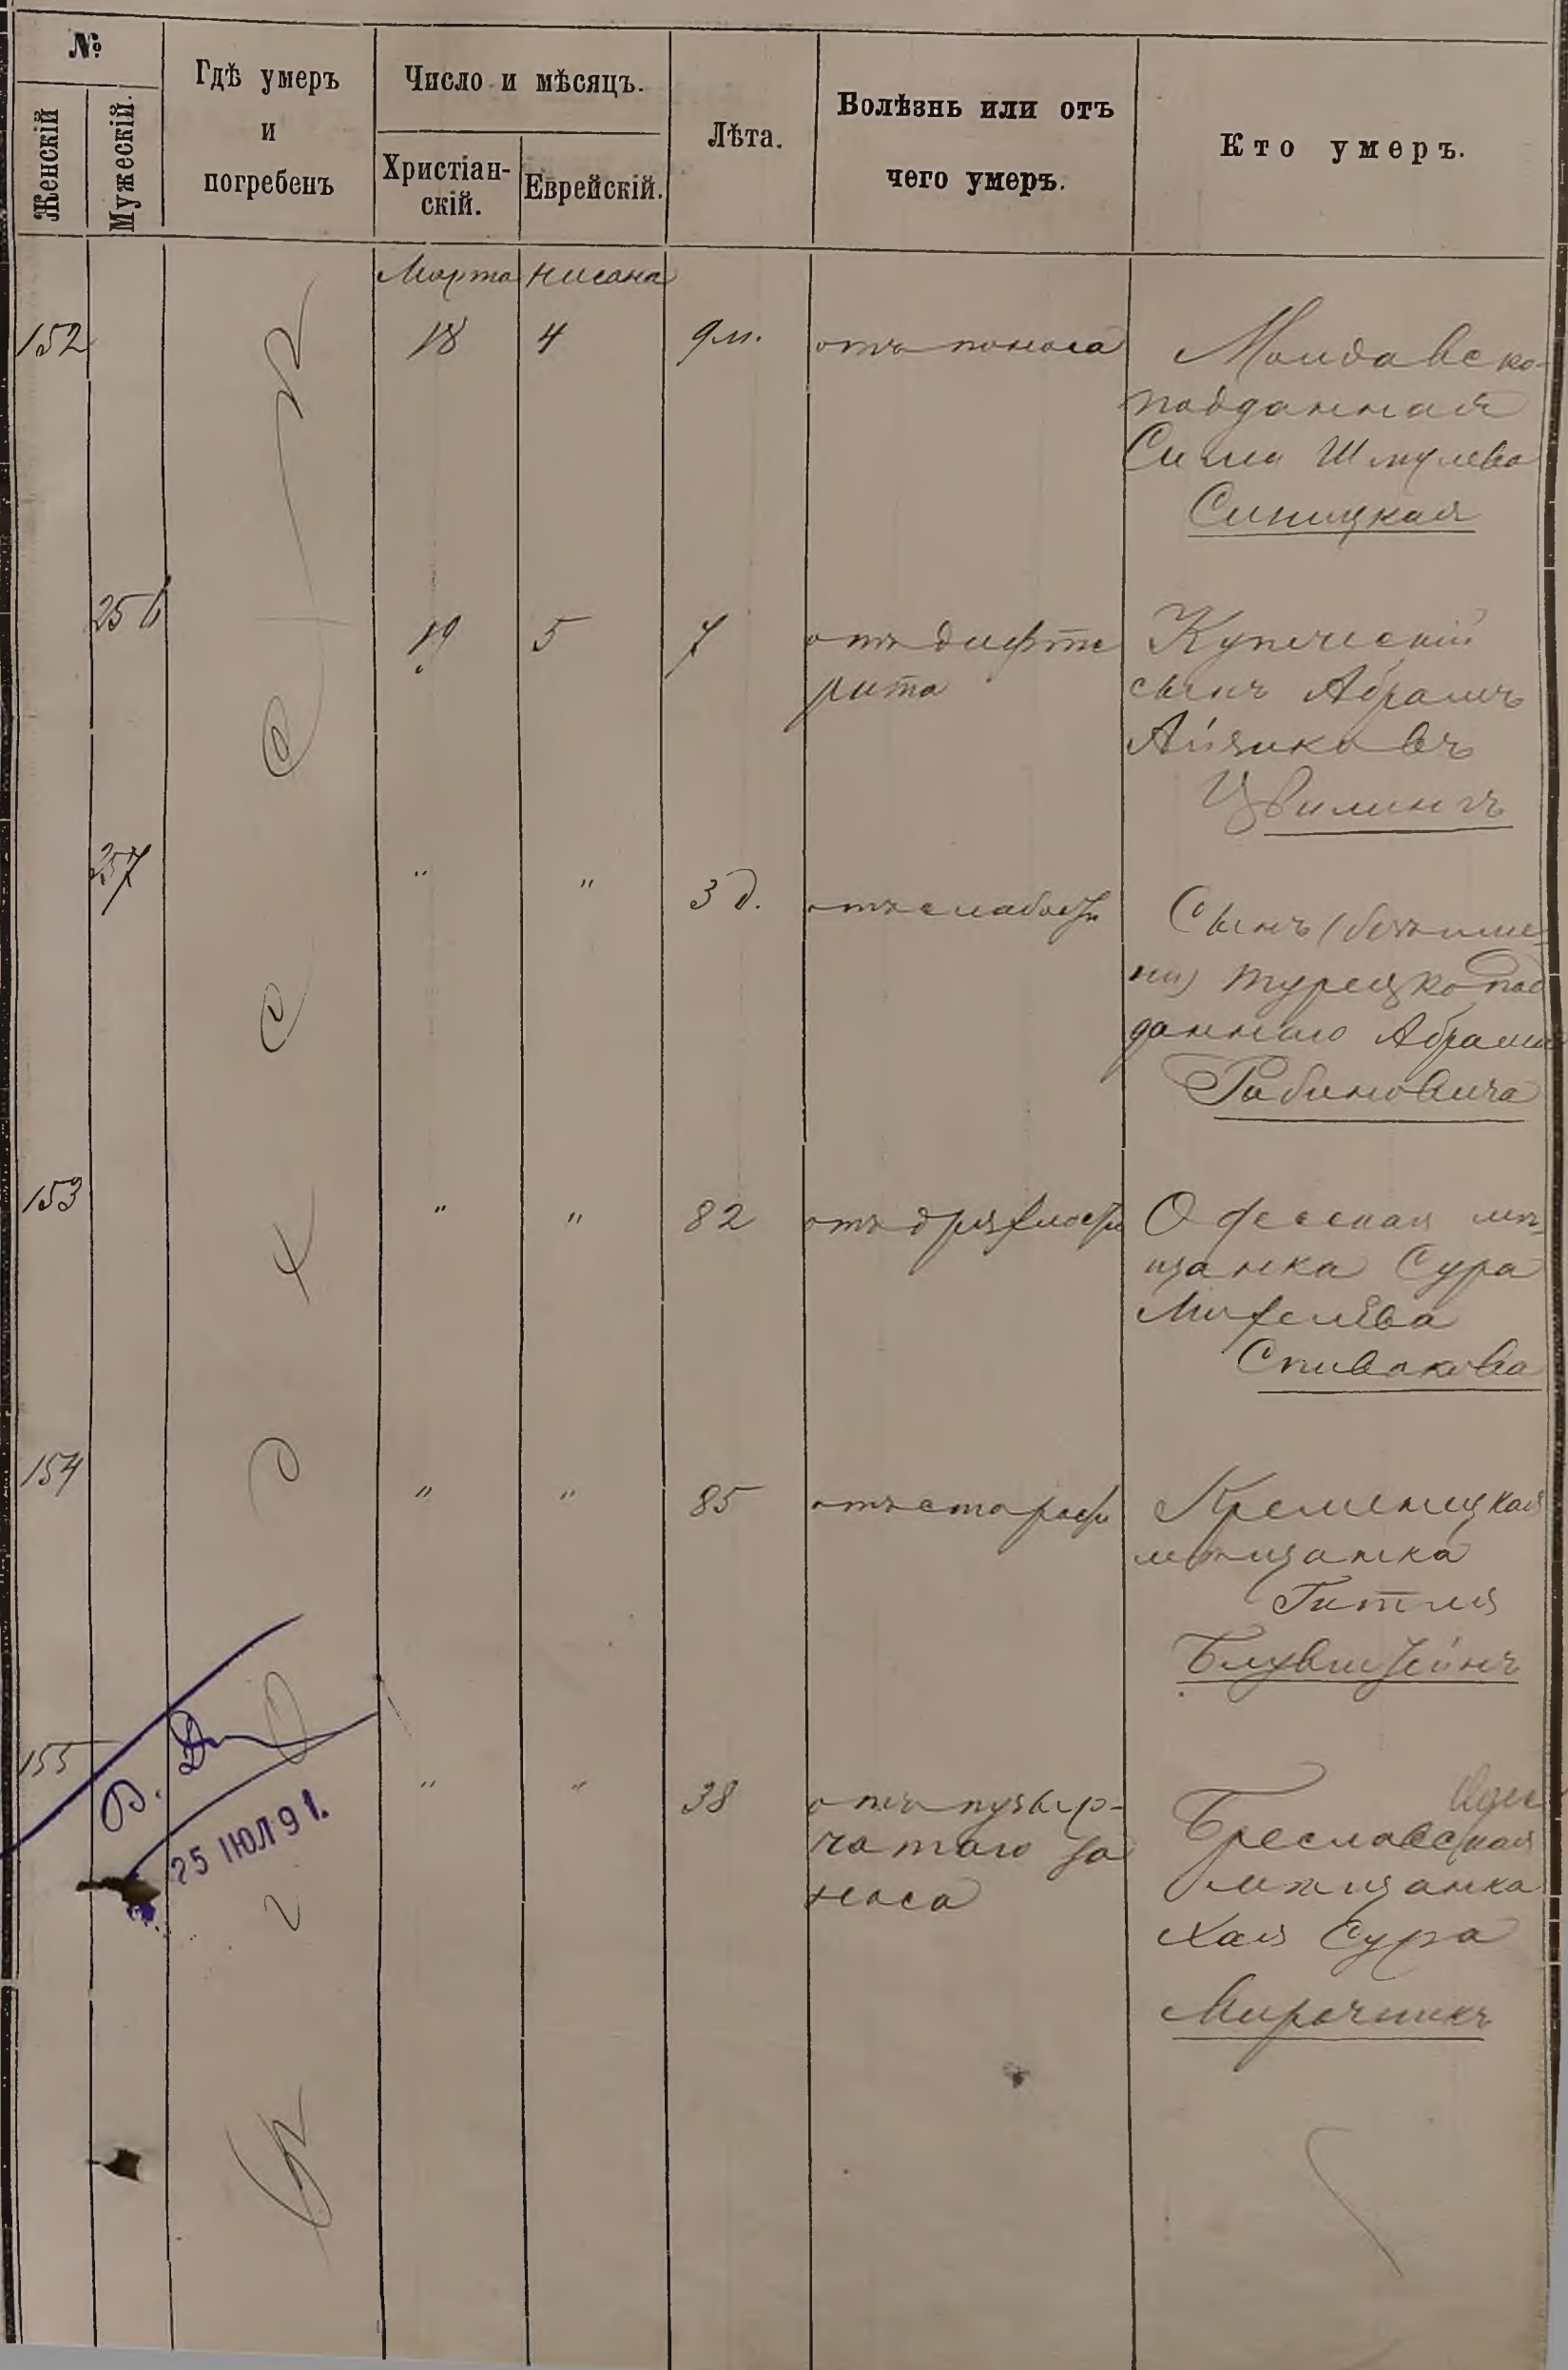 №
Женскій
Мужескій.
Гдѣ умеръ
и
погребенъ
Число и мѣсяцъ.
Христіан-
скій.
Еврейскій.
Лѣта.
Болѣзнь или отъ
чего умеръ.
Кто умеръ.
Марта Нисана
152 18 4 9 м. отъ поноса
Молдавско-
подданная
Сима Шмулева
Синицкая
256 19 5 7 отъ дифте
рита
Купеческій
сынъ Абрамъ
Айзиковъ
Цвилингъ
257 " " 3 д. отъ слабости
Сынъ (безъ име
ни) турецкопод
даннаго Абрама
Рабиновича
153 " " 82 отъ дряхлости
Одесская мѣ
щанка Сура
Михелева
Спивакова
154 " " 85 отъ старости
Кременецкая
мѣщанка
Гитля
Блувштейнъ
155 " " 38 отъ пузыр-
чатаго за
носа
Бреславская
мѣщанка
Хая Сура
Мирочникъ
В Одессѣ
25 ІЮЛ 91.